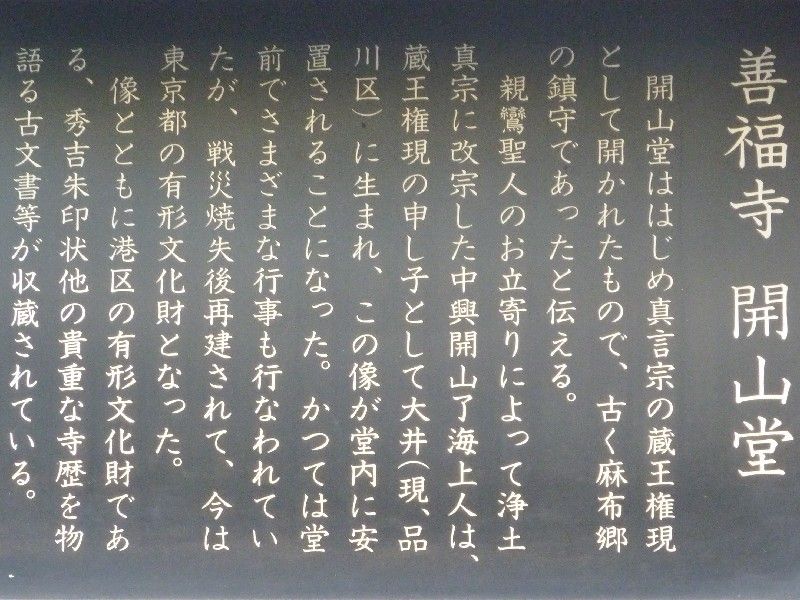 善福寺 開山堂
開山堂ははじめ真言宗の蔵王権現
として開かれたもので、古く麻布郷
の鎮守であったと伝える。
親鸞聖人のお立寄りによって浄土
真宗に改宗した中興開山了海上人は、
蔵王権現の申し子として大井(現、品
川区)に生まれ、この像が堂内に安
置されることになった。かつては堂
前でさまざまな行事も行なわれてい
たが、戦災焼失後再建されて、今は
東京都の有形文化財となった。
像とともに港区の有形文化財であ
る、秀吉朱印状他の貴重な寺歴を物
語る古文書等が収蔵されている。